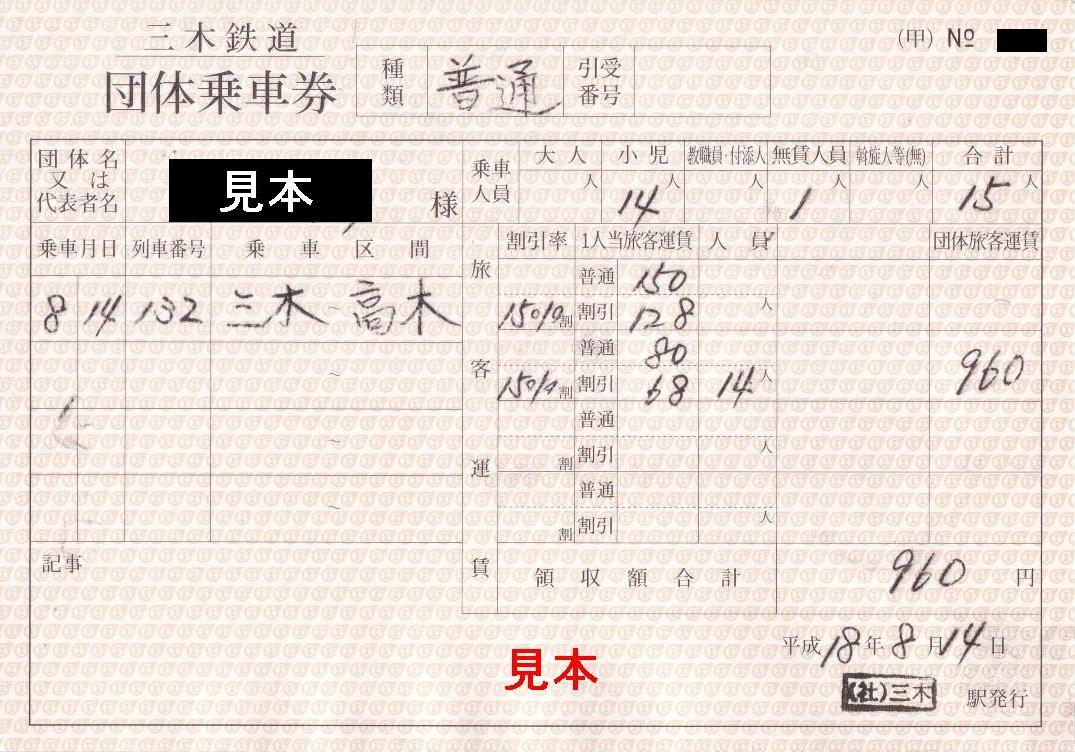 三木鉄道
団体乗車券
種類 普通 引受番号
(甲) №
団体名又は代表者名 見本 様
乗車人員 大人 小児 教職員・付添人 無賃人員 斡旋人等(無) 合計
人 14人 人 1人 人 15人
乗車月日 列車番号 乗車区間
8 14 132 三木 ~ 高木
~
~
~
旅客運賃
割引率 1人当旅客運賃 人員 団体旅客運賃
普通 150
15% 割 割引 128 人
普通 80
15% 割 割引 68 14人 960
普通
割 割引 人
普通
割 割引 人
領収額合計 960 円
記事
見本
平成18年8月14日
(社)三木 駅発行